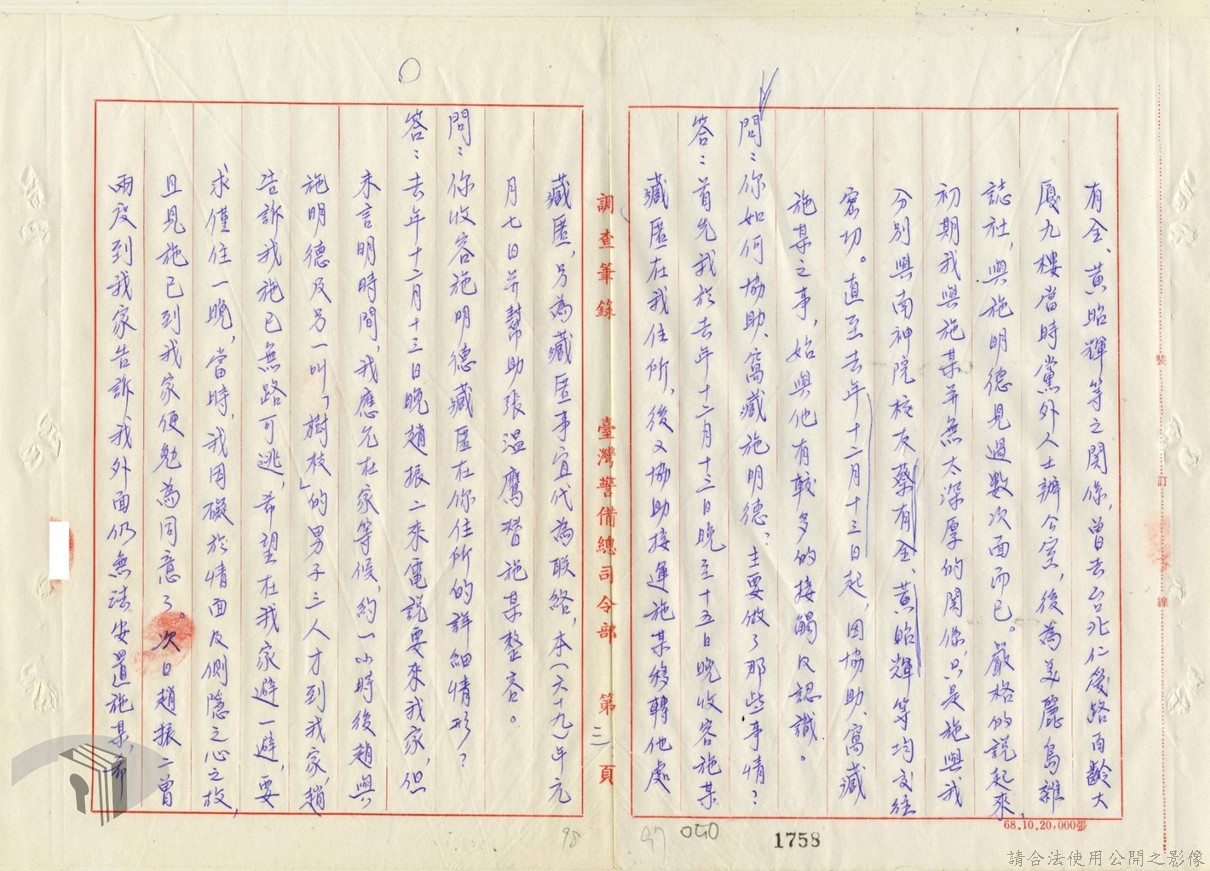 有全、黃昭輝等之關係，曾去台北仁愛路百齡大
廈九樓當時黨外人士辦公室，後為美麗島雜
誌社，與施明德見過數次面而已。嚴格的說起來，
初期我與施某并無太深厚的關係，只是施與我
分別與南神院校友蔡有全、黃昭輝等均交往
密切。直至去年十二月十三日起，因協助、窩藏
施某之事，始與他有較多的接觸及認識。
問：你如何協助、窩藏施明德？主要做了那些事情？
答：首先我於去年十二月十三日晚至十五日晚收容施某
藏匿在我住所，後又協助接運施某移轉他處
調查筆錄 臺灣警備總司令部 第三頁
藏匿，另為藏匿事宜代為聯絡，本（六十九）年元
月七日并幫助張溫鷹替施某整容。
問：你收容施明德藏匿在你住所的詳細情形？
答：去年十二月十三日晚趙振二來電說要來我家，但
未言明時間，我應允在家等候，約一小時後趙與
施明德及另一叫「樹枝」的男子三人才到我家，趙
告訴我施已無路可逃，希望在我家避一避，要
求僅住一晚，當時，我因礙於情面及惻隱之心之故，
且見施已到我家便勉為同意了。次日趙振二曾
兩度到我家告訴我外面仍無法安置施某，希
裝 訂 線
68.10.20,000張
1758
97
040
98
請合法使用公開之影像